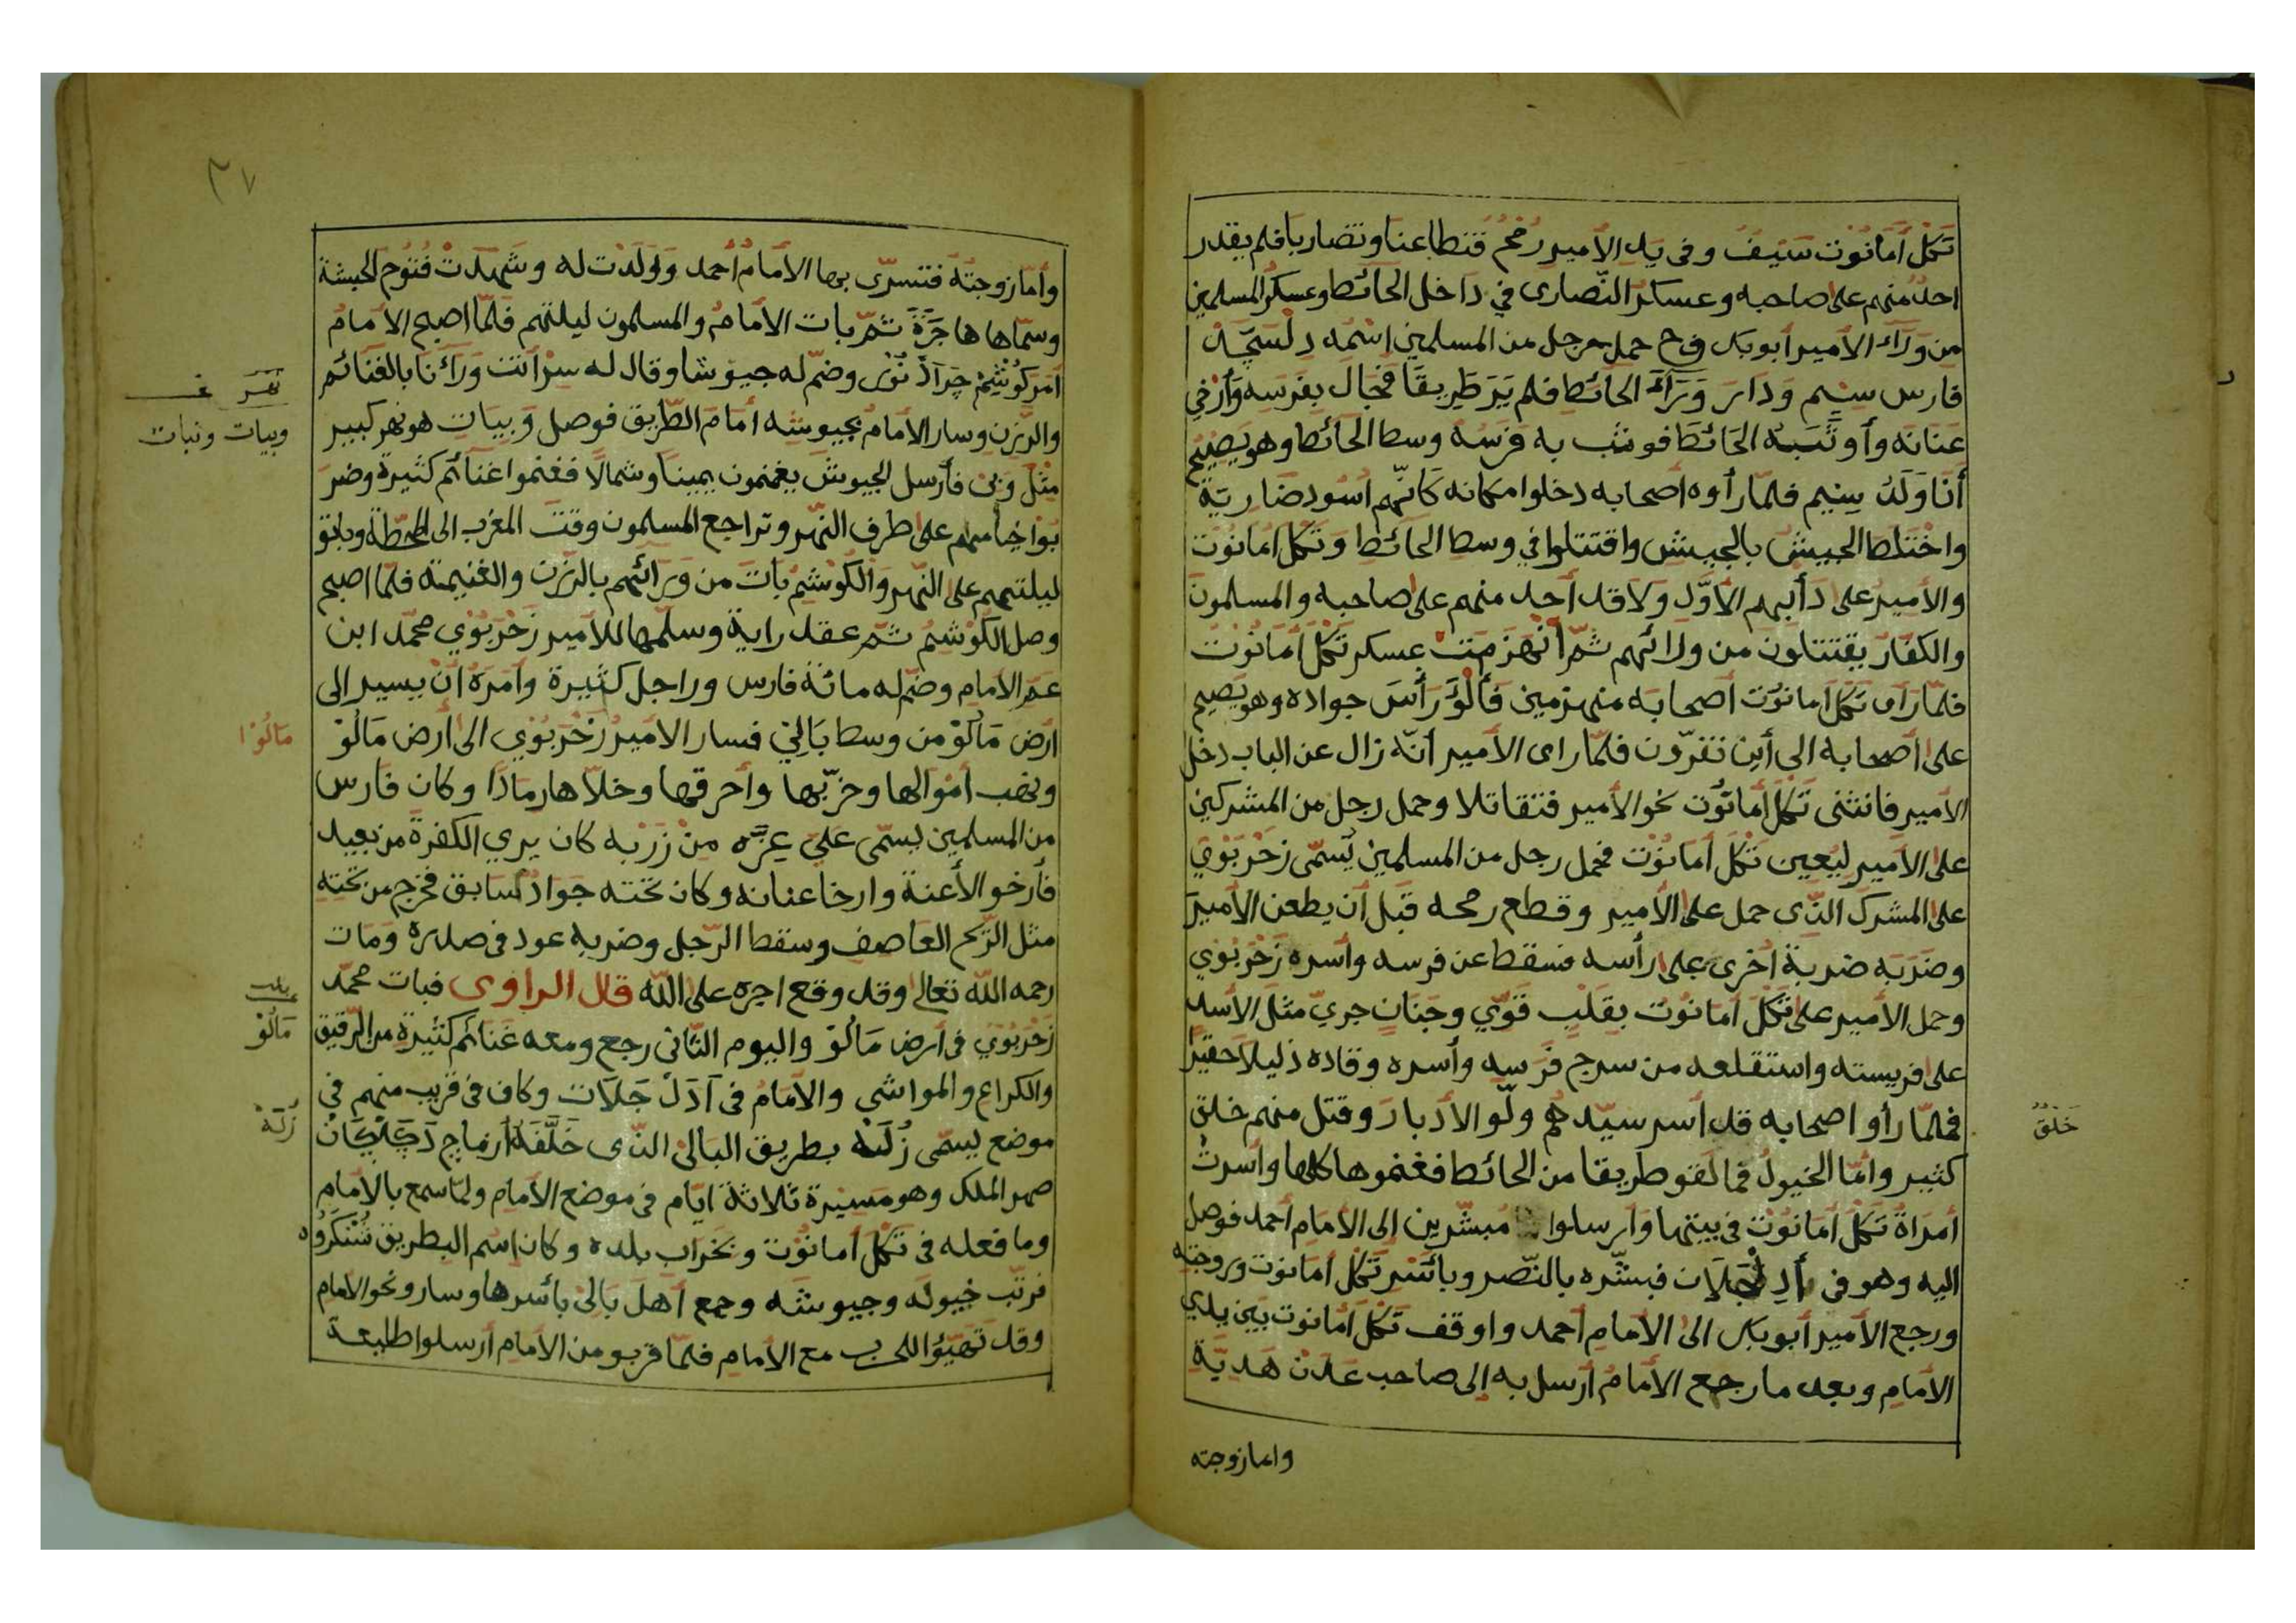 تَكَل أمانُوت سَيْفُ وفى يد الأمير رُمْحُ فتطاعنا وتضاربا فلم يقدر
احد منهم على صاحبه وعسكر النّصارى في داخل الحائط وعسكر المسلمين
من وَرآء الأمير أبو بكر فح حمل رجل من المسلمين اسْمُه دِلْسَجَّد
فارس سيْم وَدارَ وَرَآءَ الحائط فلم يَرَ طَرِيقًا فجال بفَرسه وأرْخي
عنانه وأوثَبَه الحَائطَ فوثب به فرَسُه وسط الحائط وهو يَصيحُ
أنَا وَلَدُ سِيم فلمّا رأوه أصحابه دخلوا مكانه كَانّهم اُسُود ضَاريَةُ
واخْتَلطَ الجيشُ بالجيش واقتتلوا في وسط الحائط وتَكل امانُوت
والأميرُ على دَأبِهِم الأوَّل ولا قد أحد منهم على صاحبه والمسلمون
والكفّار يقتتلون من ورائهم ثمّ اَنْهَزَمَت عسكر تَكْلَ أمانُوت
فلمّا رَأى تكل امانُوت أصحابَه منهزمين فألْوَ رَأْسَ جواده وهو يَصيح
على أصحابه الى أين تفرّون فلمّا راى الأمير أنّه زال عن الباب دخل
الأمير فانثنى تَكل أمانُوت نحو الأمير فتقاتلا وحمل رجل من المشركين
على الأميرِ ليُعين تَكْل أمانُوت فحمل رجل من المسلمين يُسَمّى زَحْرَبُوي
على المشرك الذّى حمل على الأمير وقطع رمحه قَبل أن يطعن الأميرَ
وضَرَبَه ضربة أخرى على رأسه فسقط عن فرسه وأسره زَحْرَبُوي
وحمل الأمير على تَكْلَ أمانُوت بقَلْبٍ قَوّيٍ وجَنَانٍ جريّ مثلَ الأسد
على فريسته واستقلعه من سرج فَرَسِه وأسره وقاده ذليلاً حقيرًا
فلمّا رأو اصحابه قد اُسر سيّدهم ولّو الأدبارَ وقتل منهم خلق
كثير وامّا الخيولُ فما لَقو طريقا من الحائط فغنموها كلها واُسرتْ
أمرَاة تَكْلَ أمَانُوت فى بيتها وأرسلوا مُبشّرين إلى الأمَام أحمد فوصل
اليه وهو فى أدِلْ جَلات فبشّره بالنّصر وبأسْرِ تَكل امانوت وزوجته
ورجع الأمير أبو بكر الى الأمام أحمد واوقف تَكَل أمانوت بَين يدي
الأمام وبعد ما رجع الأمامُ أرسل به إلى صاحب عَدَن هَديّةً
واما زوجته
خَلْقٌ
٣٧
وأمّا زوجتَه فتسرّى بها الأمامُ أحمد ووَلَدَت له وشَهِدَت فتُوح الحبشة
وسمّاها هاجَرَةَ ثمّ بات الأمامُ والمسلمون ليلتهم فلمّا اصبح الأمامُ
أمَرَ كُوشَمْ جَرآدْ نُور وضمّ له جيوشا وقال له سِرْ أنتَ وَرَآءنَا بالغَنَائم
والرّزن وسار الأمامُ بجيوشه أمَامَ الطّريق فوصل وَبيَاتِ هو نهر كبير
مثْلَ وَبِىْ فأرسل الجيوش يغنمون يمينا وشمالًا فغنموا غَنَائم كثيرة وضرَ
بُوا خيامهم على طرف النّهر وتراجع المسلمون وقت المغرب الى المحطّة وباتو
ليلتهم على النّهر والكُوشَمُ باتَ من وَرَائهم بالرّزن والغنيمة فلمّا اصبح
وصل الكُوشمُ ثمّ عقد راية وسلّمها للأمير زَحْرَبُوْي محمّد ابن
عمّ الأمام وضمّ له مائة فارس وراجل كثيرة وأمَرَهُ أنْ يسير الى
ارَض مَالُوْ من وسط بَالِيْ فسار الامير زَحْرَبُوْي الى أرض مَالُوْ
ونهب أمْوَالها وخرّبها وأحرقها وخلّاها رمَادًا وكان فَارس
من المسلمين يسمّى عَليّ عِزّه مِنْ زَرْبَه كان يري الكفرةَ من بعيد
فأرخو الأعنة وارخا عنانه وكان تحته جَوادُ سَابق فخرج من تحتِه
مثل الرّيح العَاصف وسقط الرّجل وضربه عود فى صدره ومَات
رحمه الله تعالى وقد وقع اجره على الله قال الراوى فبات محمّد
زَحْرَبُويَ فى أرض مَالُوْ واليوم الثّانى رجع ومعه غَنائم كثيرة من الرّقيق
والكراع والمواشى والأمَامُ فى آدَلْ جَلَات وكان فى قريب منهم فى
موضع يسمّى زُلَه بطريق البَالىْ الذّى خَلَّفَهُ أزمَاج دَجَلْحَانْ
صهر الملك وهو مَسيْرة ثلاثة ايّام فى موضع الأمام ولمّا سمع بالأمَامِ
وما فعله فى تَكْل أمانُوْت وبخَرَاب بلده وكان اسْم البطريق شنْكَرُوه
فرتّب خيولَه وجيوشَه وجمع أهلَ بَالىْ بأسرها وسارو نحو الأمام
وقد تَهَيّؤ اللحرب مع الأمام فلمّا قربو من الأمَام أرسلوا طليعة
نهر
وبيات ونبات
مَالُوْا
مَالُوْ
زُلَهْ